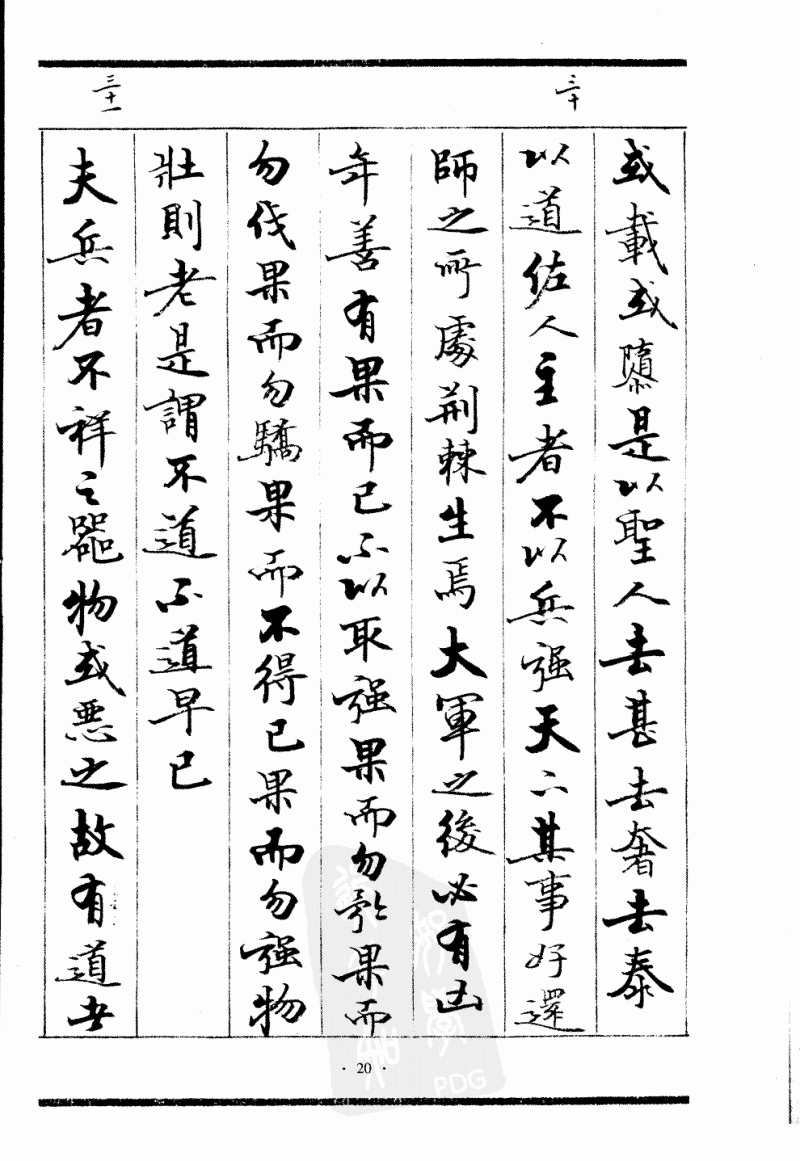 三十
或載或隳是以聖人去甚去奢去泰
以道佐人主者不以兵强天下其事好還
師之所處荆棘生焉大軍之後必有凶
年善有果而已不以取强果而勿矜果而
勿伐果而勿驕果而不得已果而勿强物
壯則老是謂不道不道早已
三十一
夫兵者不祥之器物或惡之故有道者
· 20 ·
PDG